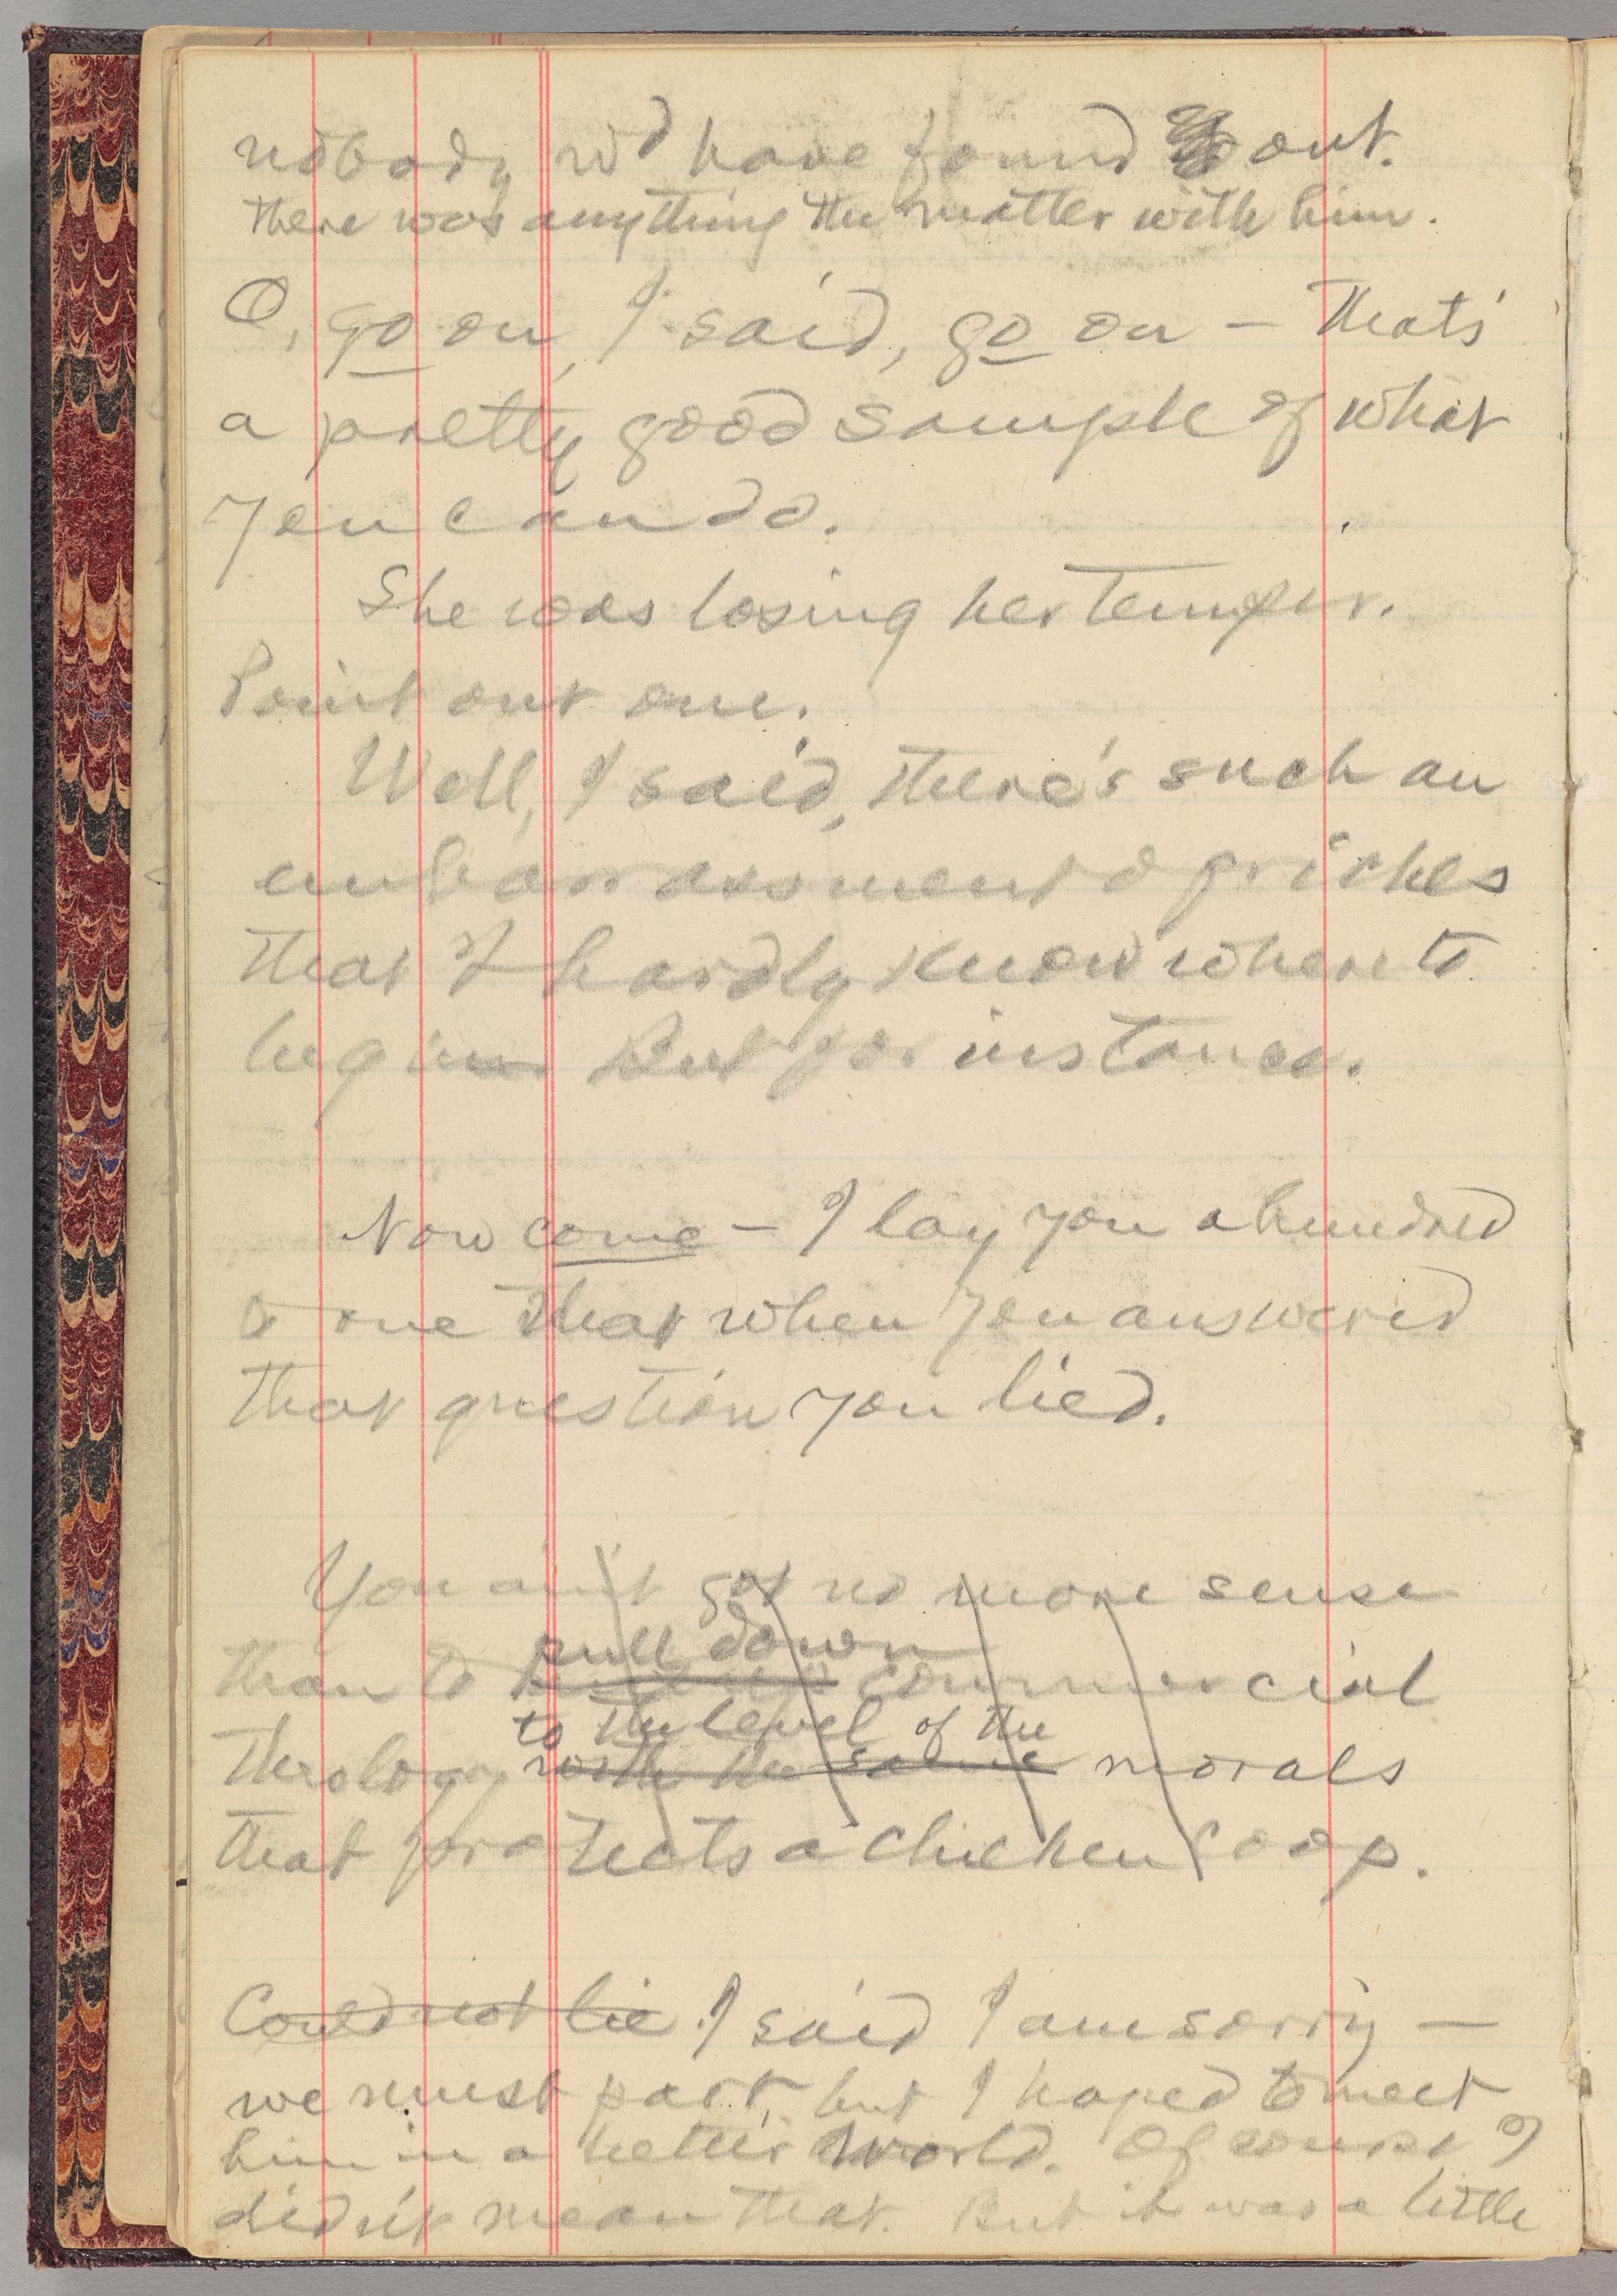 nobody wd have found out.
there was anything the matter with him.
O, go on, I said, go on — that's
a pretty good sample of what
you can do.
She was losing her temper.
Point out one.
Well, I said, there's such an
embarrassment of riches
that I hardly know where to
begin But for instance.
Now come — I lay you a hundred
to one that when you answered
that question you lied.
You ain't got no more sense
pull down
than to commercial
to the level of the
theology with the same morals
that protects a chicken coop.
Could not lie. I said I am sorry —
we must part, but I hoped to meet
him in a better world. Of course I
didn't mean that. But it was a little